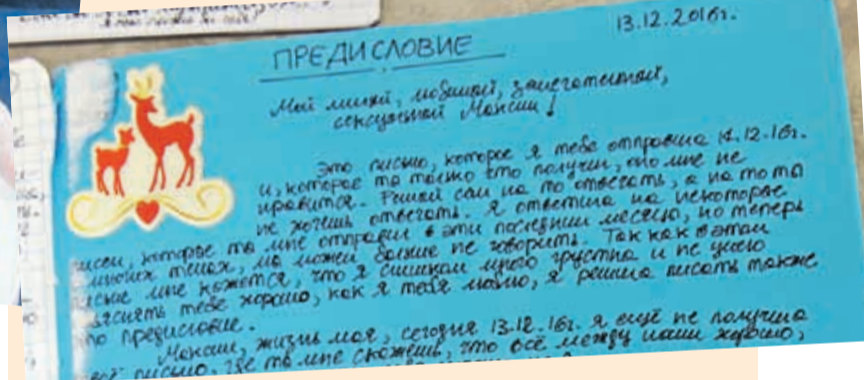 13.12.2016г.
ПРЕДИСЛОВИЕ
Мой милый, любимый, замечательный,
сексуальный Максим!
Это письмо, которое я тебе отправила 14.12.16г.
и, которое ты только что получил, оно мне не
нравится. Решай сам на то отвечать, а на то ты
не хочешь отвечать. Я ответила на некоторые
письма, которые ты мне отправил в эти последние месяцы, но теперь
темах, мы можем больше не говорить. Так как в этом
письме мне кажется, что я слишком много грустна и не умею
объяснять тебе хорошо, как я тебя люблю, я решила писать также
это предисловие.
Максим, жизнь моя, сегодня 13.12.16г. я ещё не получила
твоё письмо, где ты мне скажешь, что всё между нами хорошо,